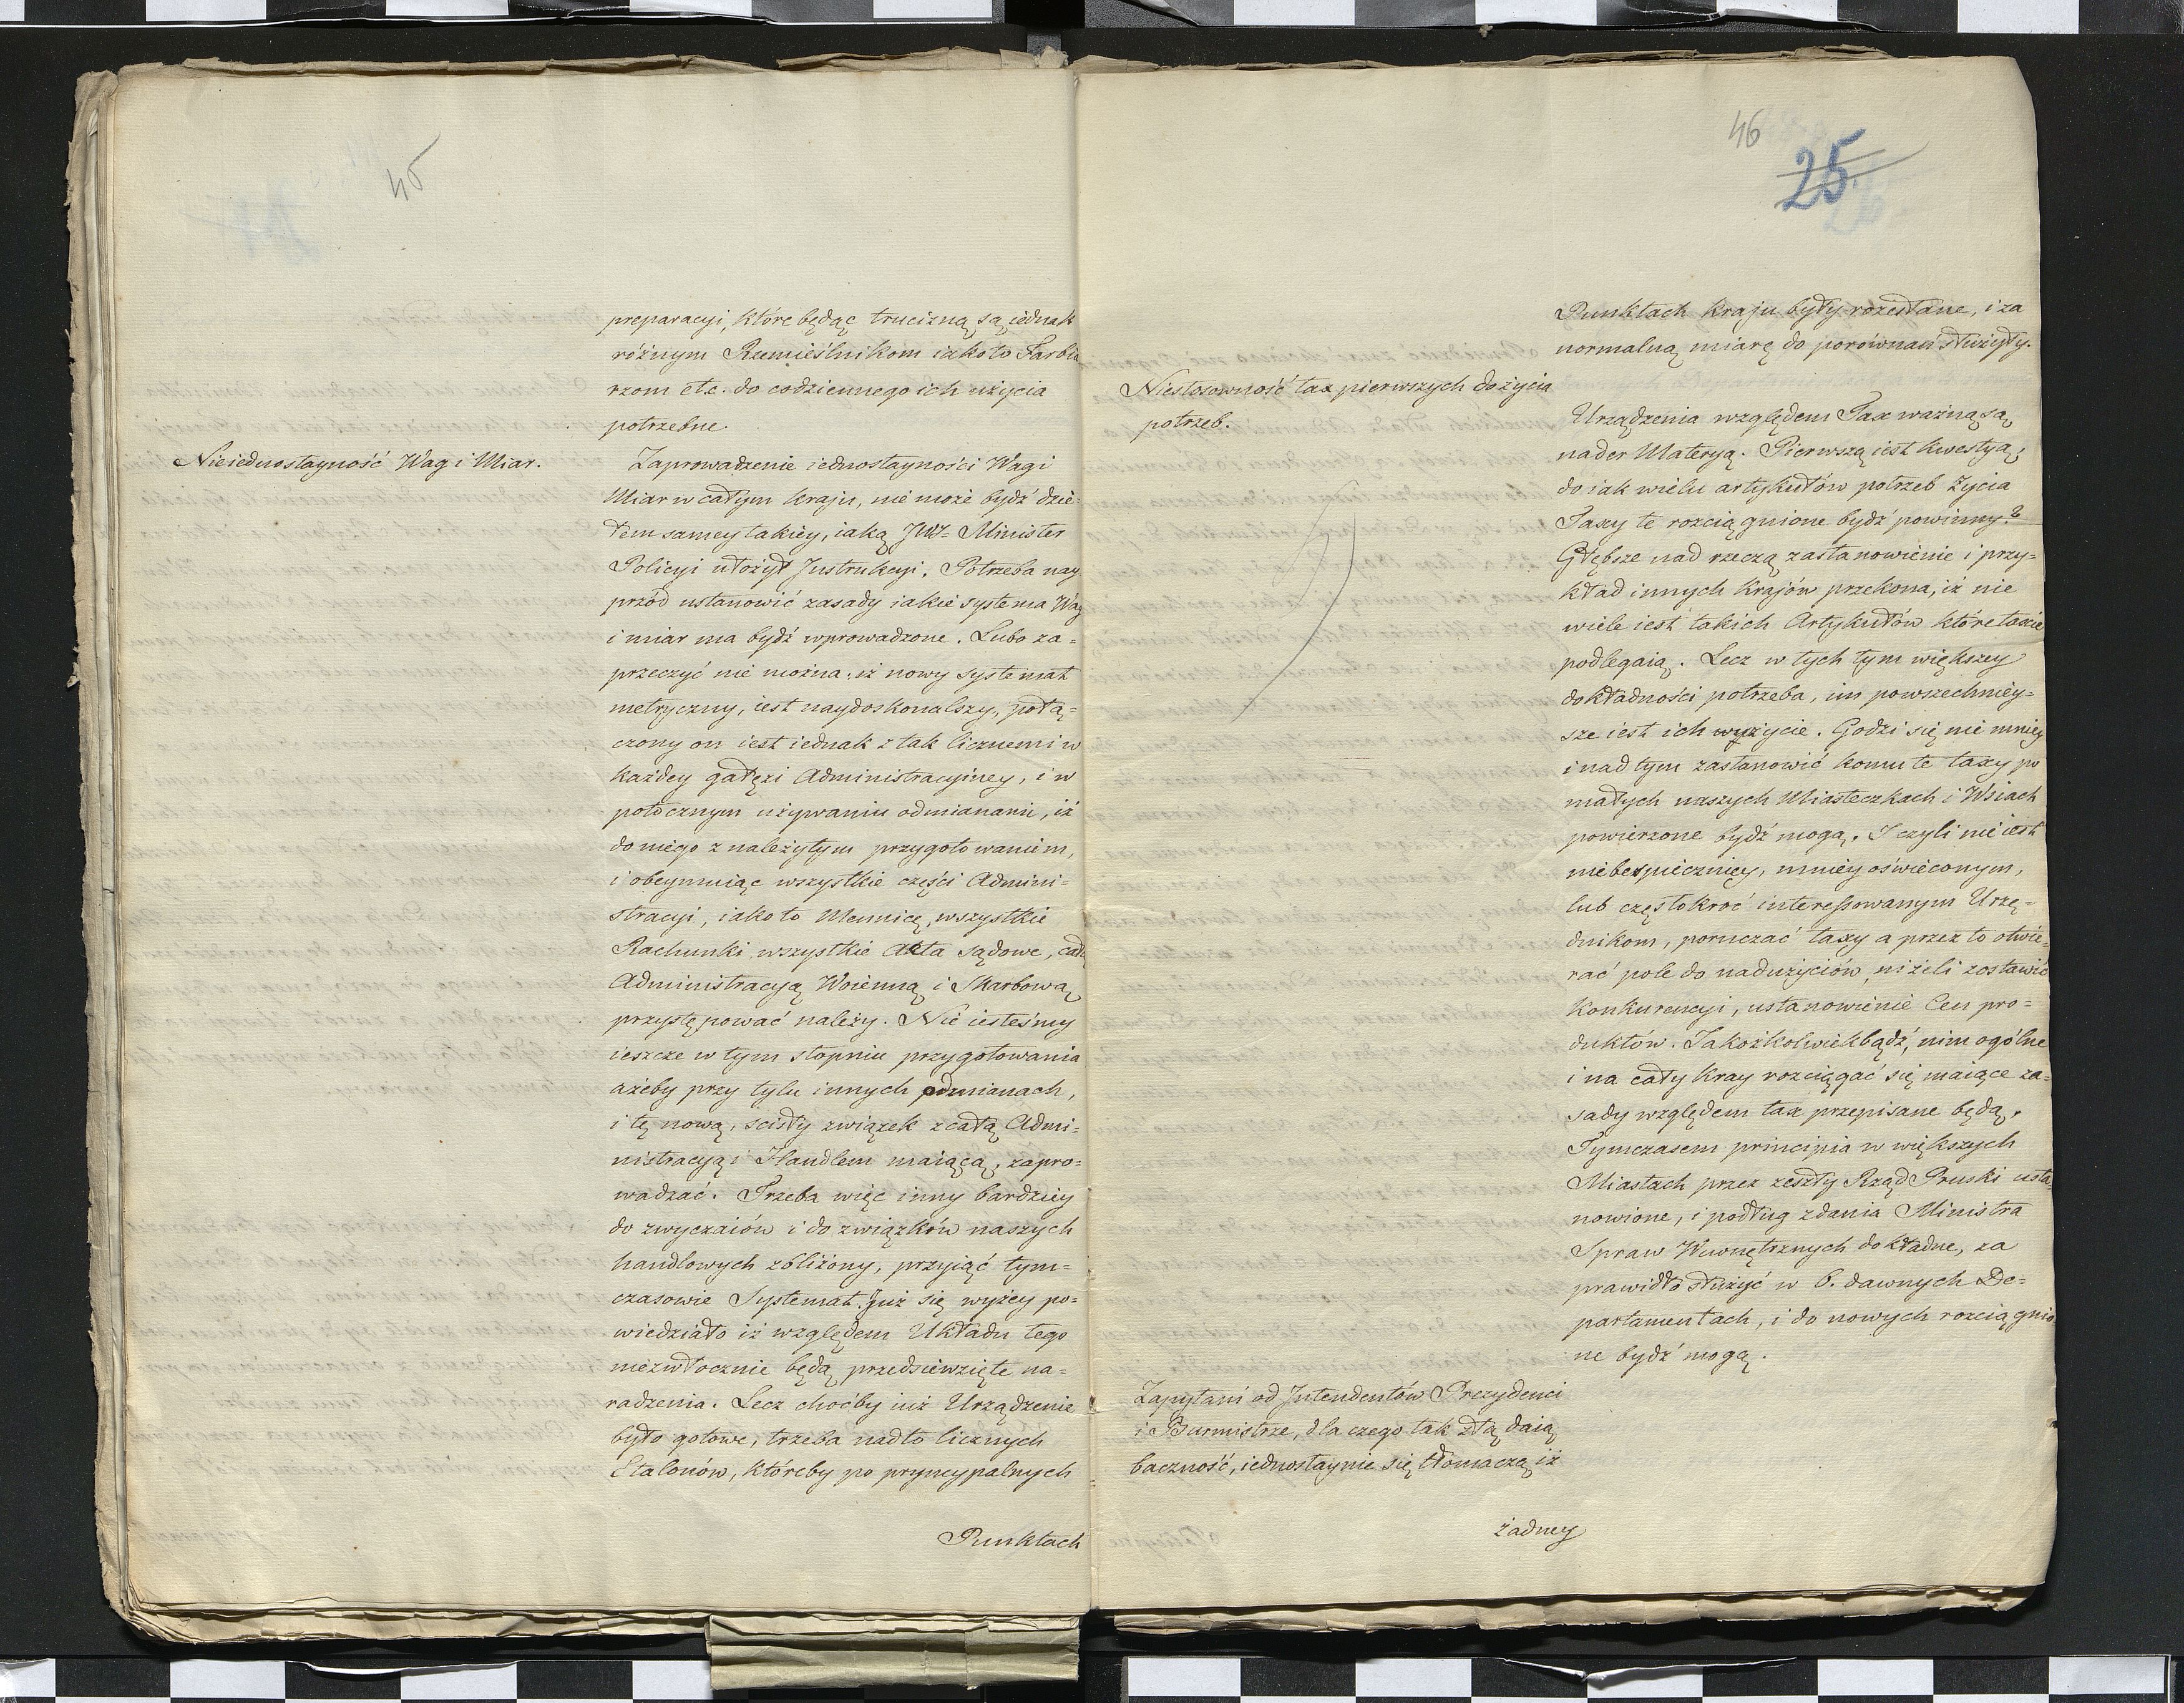 45
preparacyi, które będąc trucizną, są iednak
różnym Rzemieślnikom iako to Farbia
rzom etc. do codziennego ich użycia
potrzebne.
Nieiednostayność Wag i Miar.
Zaprowadzenie iednostayności Wagi
Miar w całym kraju, nie może bydź dzie=
łem samey takiey, iaką JW= Minister
Policyi ułożył Instrukcyi. Potrzeba nay
przód ustanowić zasady iakie systema Wag
i miar ma bydź wprowadzone. Lubo za=
przeczyć nie można, iż nowy systemat
metryczny, iest naydoskonalszy, połą=
czony on iest iednak z tak licznemi w
każdey gałęzi Administracyiney, i w
potocznym używaniu odmianami, iż
do niego z należytym przygotowaniem,
i obeymuiąc wszystkie części Admini=
stracyi, iako to Mennicę, wszystkie
Rachunki wszystkie Akta sądowe, całą
Administracyą Woienną i Skarbową
przystępować należy. Nie iesteśmy
ieszcze w tym stopniu przygotowania
ażeby przy tylu innych odmianach,
i tę nową, scisły związek z całą Admi=
nistracyą i Handlem maiącą, zapro=
wadzać. Trzeba więc inny bardziey
do zwyczaiów i do związków naszych
handlowych zbliżony, przyiąć tym=
czasowie Systemat. Już się wyżey po=
wiedziało iż względem Układu tego
niezwłocznie będą przedsiewzięte na=
radzenia. Lecz choćby iuż Urządzenie
było gotowe, trzeba nadto licznych
Etalonów, któreby po pryncypalnych
Punktach
46
25
Punktach kraju były rozesłane, i za
normalną miarę do porównań służyły.
Niestosowność tax pierwszych do życia
potrzeb.
Urządzenia względem Tax ważną są
nader Materyą. Pierwszą iest kwestyą,
do iak wielu artykułów potrzeb życia
Taxy te rozciągnione bydź powinny?
Głębsze nad rzeczą zastanowienie i przy=
kład innych krajów przekona, iż nie
wiele iest takich Artykułów które taxie
podlegaią. Lecz w tych tym większey
dokładności potrzeba, im powszechniey=
sze iest ich użycie. Godzi się nie mniey
i nad tym zastanowić komu te taxy po
małych naszych Miasteczkach i Wsiach
powierzone bydź mogą. I czyli nie iest
niebespieczniey, mniey oświeconym,
lub częstokroć interessowanym Urzę=
dnikom, poruczać taxy a przez to otwie=
rać pole do nadużyciów, niżeli zostawić
konkurencyi, ustanowienie Cen pro=
duktów. Jakożkolwiekbądź, nim ogólne
i na cały kray rozciągać się maiące za=
sady względem tax przepisane będą.
Tymczasem principia w większych
Miastach przez zeszły Rząd Pruski usta=
nowione, i podług zdania Ministra
Spraw Wewnętrznych dokładne, za
prawidło służyć w 6. dawnych De=
partamentach, i do nowych rozciągnio
ne bydź mogą.
Zapytani od Intendentów Prezydenci
i Burmistrze, dla czego tak złą daią
baczność, iednostaynie się tłómaczą iż
żadney